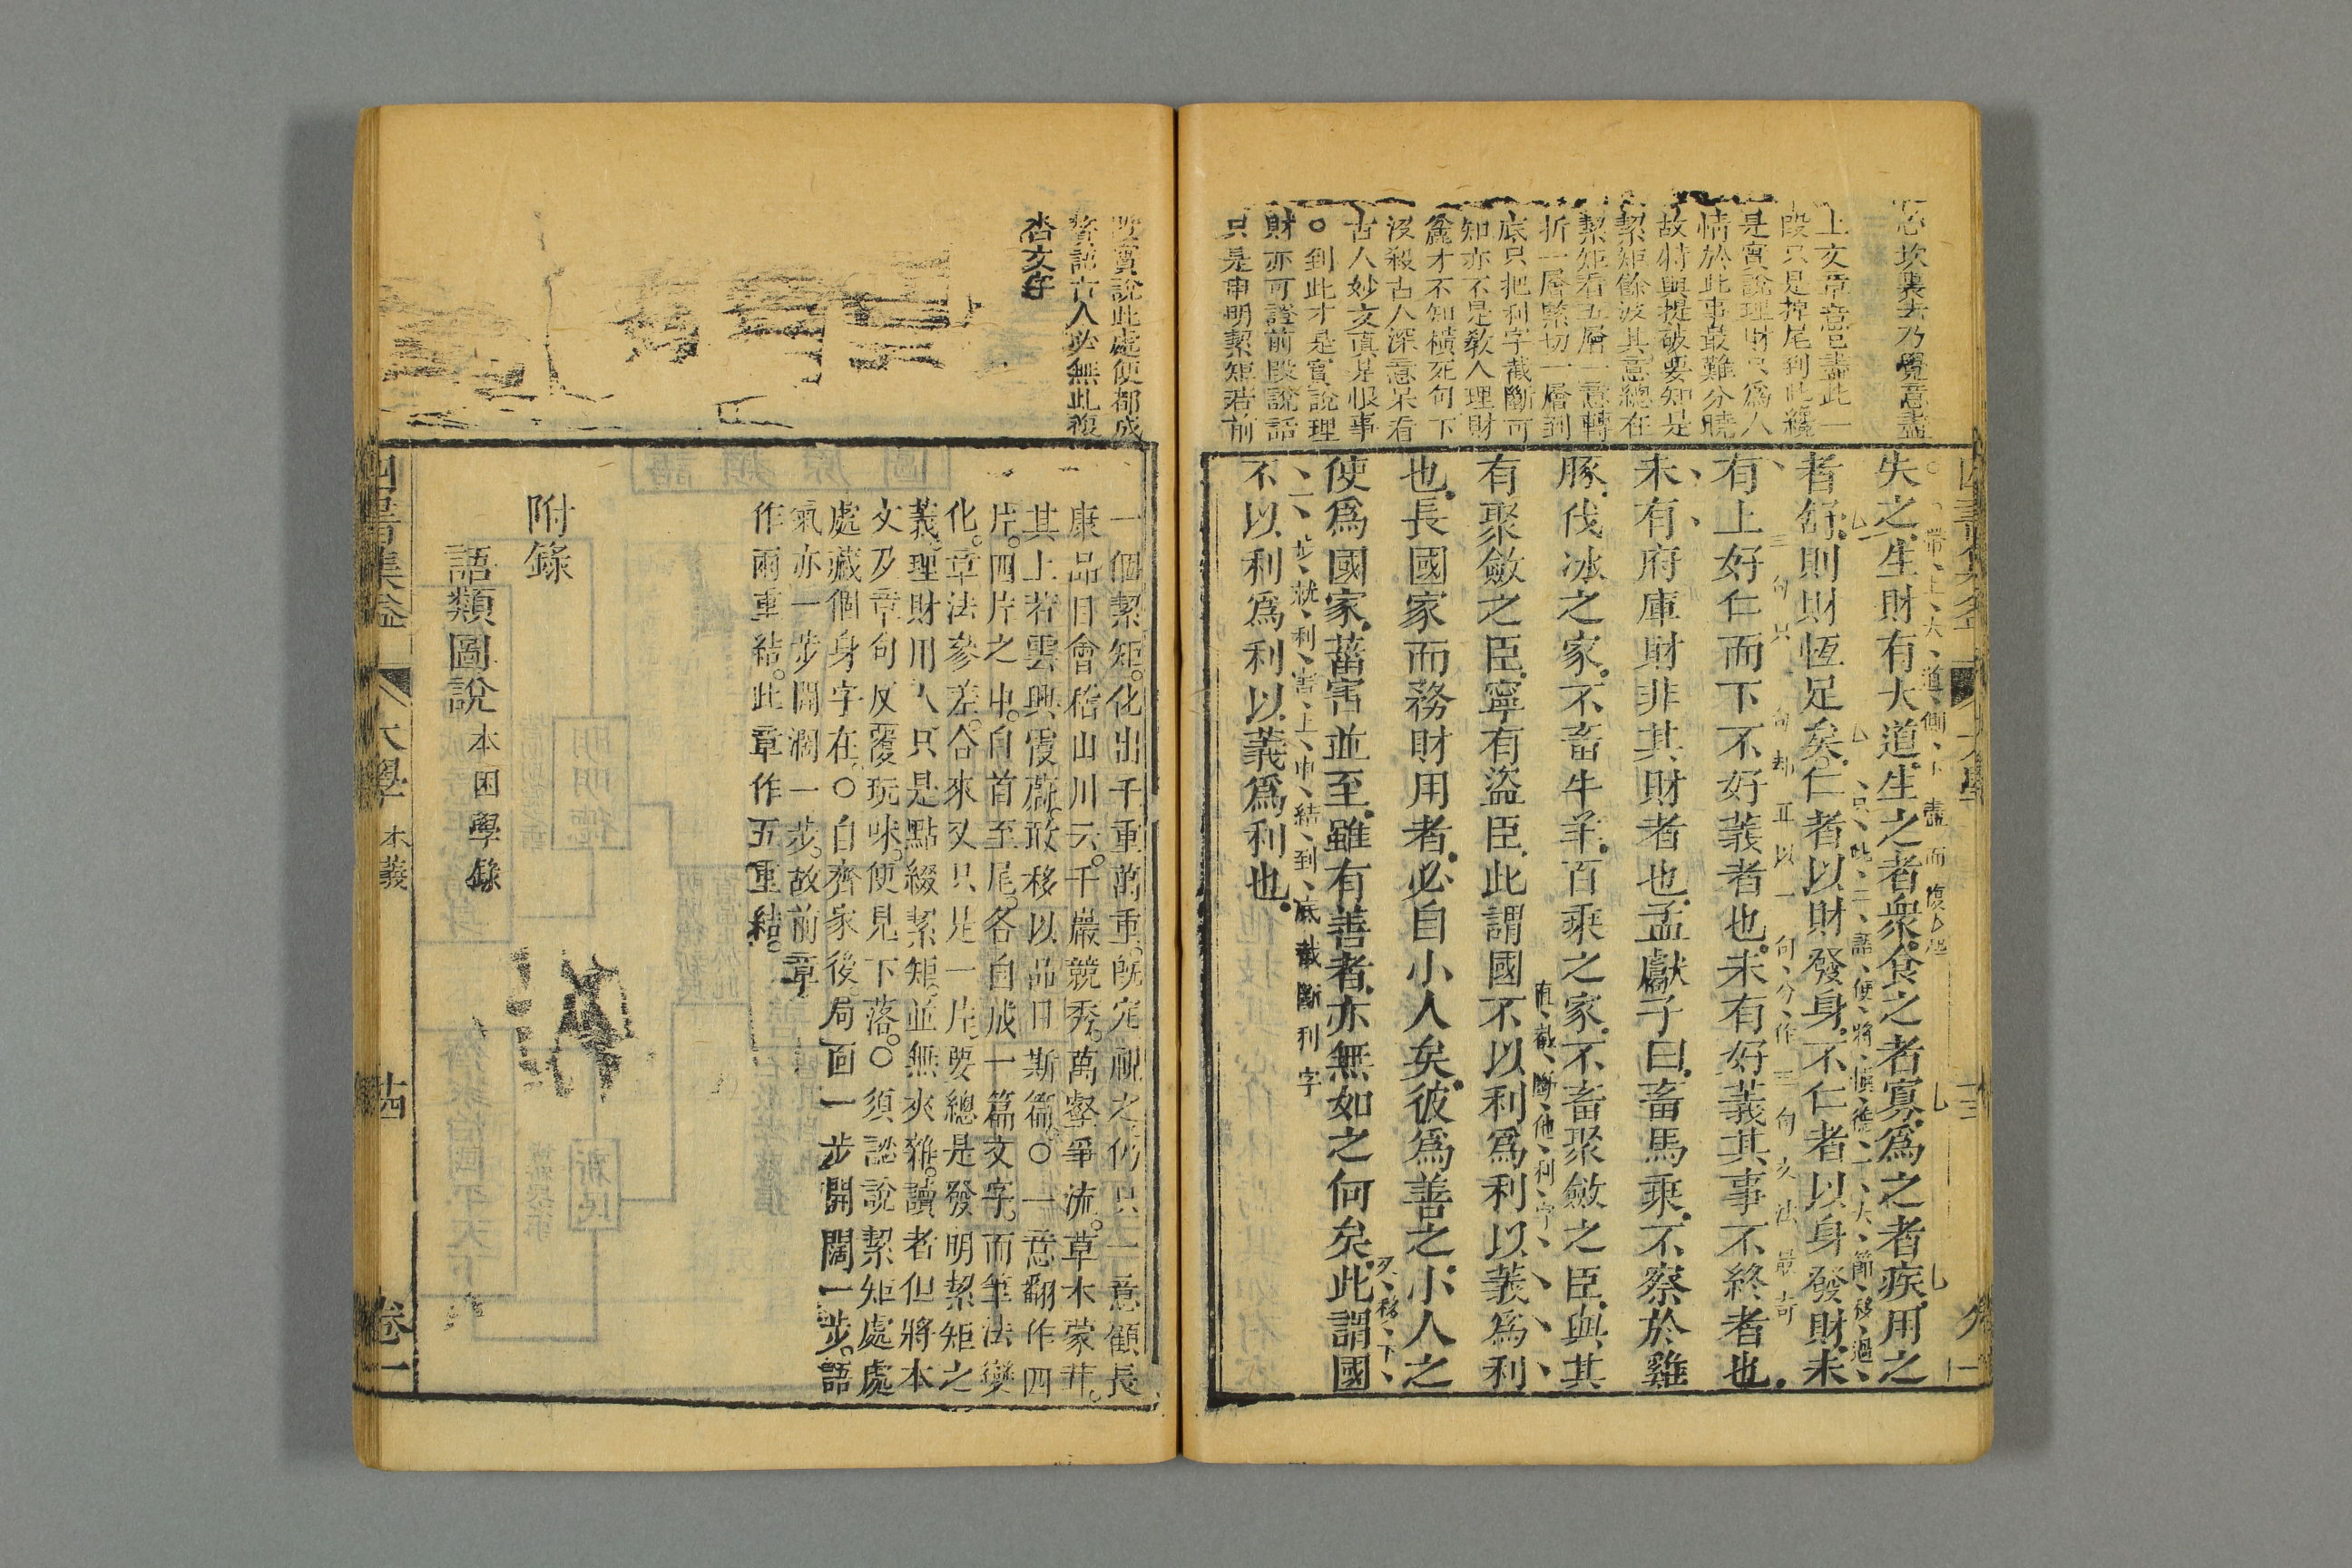 忿坎裏去乃覺意盡
上文章意已盡此一
段只是掉尾到此纔
是實說理財只為人
情於此事最難分曉
故特與提破要知是
絜矩餘波其意總在
絜矩看五層一意轉
折一層緊切一層到
底只把利字截斷可
知亦不是教人理財
麄才不知橫死句下
沒殺古人深意呆看
古人妙文真是恨事
○到此才是實說理
財亦可證前段說話
只是申明絜矩若前
失之生財有大道生之者衆食之者寡為之者疾用之
者舒則財恆足矣仁者以財發身不仁者以身發財未
三句只一句却正以一句分作三句文法最奇
有上好仁而下不好義者也未有好義其事不終者也
未有府庫財非其財者也孟獻子曰畜馬乘不察於雞
豚伐冰之家不畜牛羊百乘之家不畜聚斂之臣與其
直截斷他利字
有聚斂之臣寧有盜臣此謂國不以利為利以義為利
也長國家而務財用者必自小人矣彼為善之小人之
又移下
使為國家菑害並至雖有善者亦無如之何矣此謂國
一步就利害上中結到底截斷利字
不以利為利以義為利也
四書集益
大學
卷一
段實說此處便都成
贅語古人必無此複
沓文字
一個絜矩。化出千重萬重。旣完視之仍只一意顧長
康品目會稽山川云。千巖競秀。萬壑爭流。草木蒙茸。
其上若雲興霞蔚。敢移以品目斯篇。○一意翻作四
片。四片之中。自首至尾。各自成一篇文字。而筆法變
化。章法參差。合來又只是一片。要總是發明絜矩之
義。理財用人只是點綴絜矩。並無夾雜。讀者但將本
文及章句反覆玩味。便見下落。○須諡說絜矩處處
處藏個身字在。○自齊家後局面一步開闊一步。語
氣亦一步開濶一步。故前章
作兩重結。此章作五重結。
附錄
語類圖說 本困學錄
四書集益
大學 本義
十四
卷一